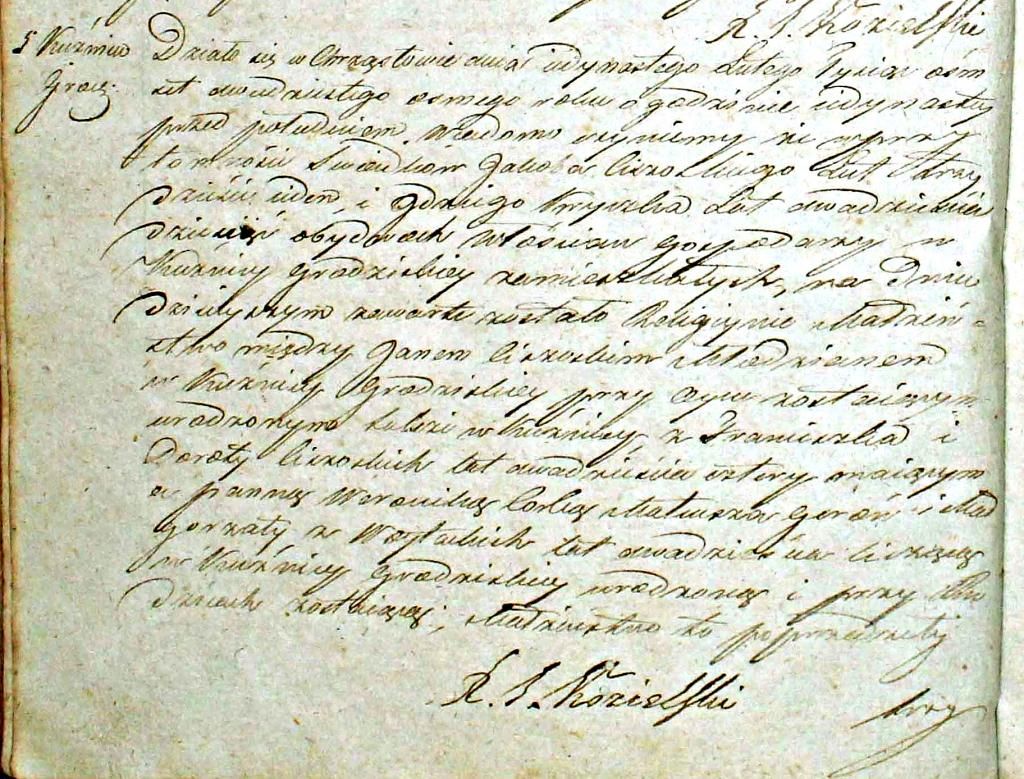 R. J. Kozielski
5 Kuźnica
Grodz:
Działo się w Chrząstowie dnia iedynastego Lutego Tysiąc osm
set dwudziestego osmego roku o godzinie iedynastey
przed południem. Wiadomo czyniemy iż w przy
tomności Swiadków Jakóba Ciszoskiego Lat trzy
dzieści ieden, i Idziego Kryszka Lat dwadzieścia
dziewięć obydwóch Włościan gospodarzy w
Kuźnicy Grodziskiey zamieszkałych, na dniu
dzisieyszym zawarte zostało Religiynie Małżeń=
stwo między Janem Ciszoskim Młodzianem
w Kuźnicy Grodziskiey przy Oycu zostaiącym
urodzonym także w Kuźnicy z Franciszka i
Doroty Ciszoskich lat dwadzieścia cztery maiącym
a panną Weroniką Corką Mateusza Giroń i Mał
gorzaty z Woytasików lat dwadzieścia liczącą
w Kuźnicy Grodziskiey urodzoną i przy
dzicach zostaiącą; Małżeństwo to poprzedziły
R. J. Kozielski
trzy